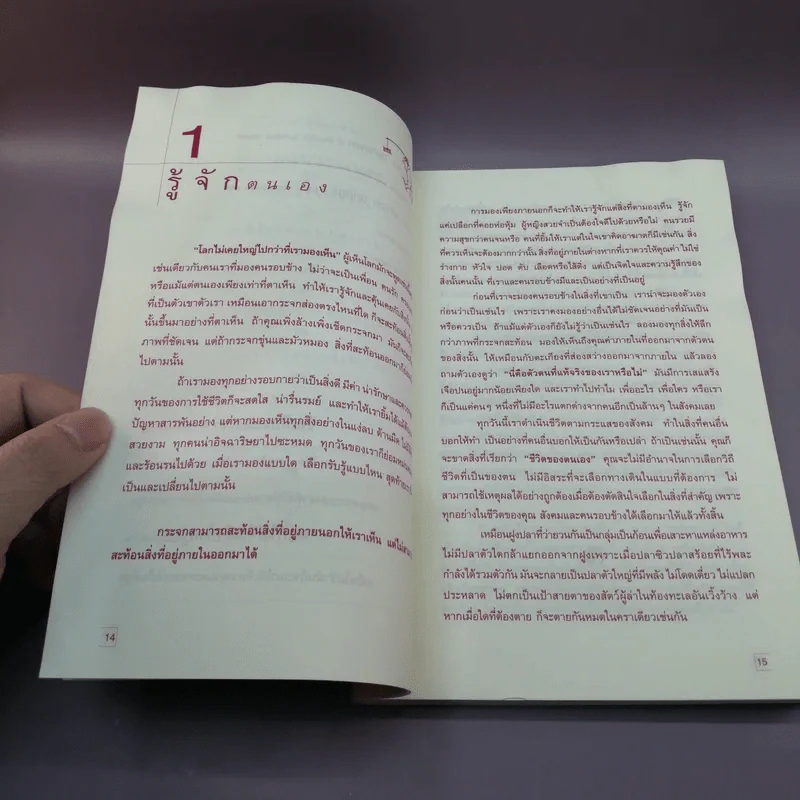 1
รู้จักตนเอง
"โลกไม่เคยใหญ่ไปกว่าที่เรามองเห็น" ผู้เห็นโลกมักจะ
เช่นเดียวกับคนเราที่มองคนรอบข้าง ไม่ว่าจะเป็นเพื่อน คนรัก
หรือแม้แต่ตนเองเพียงเท่าที่ตาเห็น ทำให้เรารู้จักและคุ้นเคยกับ
ที่เป็นตัวเขาตัวเรา เหมือนเอากระจกส่องตรงไหนที่ใด ก็จะสะท้อน
นั้นขึ้นมาอย่างที่ตาเห็น ถ้าคุณเพิ่งล้างเพิ่งเช็ดกระจกมา
ภาพที่ชัดเจน แต่ถ้ากระจกขุ่นและมัวหมอง สิ่งที่สะท้อนออกมาก็
ไปตามนั้น
ถ้าเรามองทุกอย่างรอบกายว่าเป็นสิ่งดี มีค่า น่ารักและ
ทุกวันของการใช้ชีวิตก็จะสดใส น่ารื่นรมย์ และทำให้เรายิ้มได้
ปัญหาสารพันอย่าง แต่หากมองเห็นทุกสิ่งอย่างในแง่ลบ ด้านมืด
สวยงาม ทุกคนน่าอิจฉาริษยาไปซะหมด ทุกวันของเราก็ย่อม
และร้อนรนไปด้วย เมื่อเรามองแบบใด เลือกรับรู้แบบไหน
เป็นและเปลี่ยนไปตามนั้น
กระจกสามารถสะท้อนสิ่งที่อยู่ภายนอกให้เราเห็น
สะท้อนสิ่งที่อยู่ภายในออกมาได้
14
การมองเพียงภายนอกก็จะทำให้เรารู้จักแต่สิ่งที่ตามองเห็น รู้จัก
แต่เปลือกที่คอยห่อหุ้ม ผู้หญิงสวยจำเป็นต้องใจดีไปด้วยหรือไม่ คนรวยมี
ความสุขกว่าคนจนหรือ คนที่ยิ้มให้เราแต่ในใจเขาคิดอาฆาตก็มีเช่นกัน สิ่ง
ที่ควรเห็นจะต้องมากกว่านั้น สิ่งที่อยู่ภายในต่างหากที่เราควรให้คุณค่า ไม่ใช่
ร่างกาย หัวใจ ปอด ตับ เลือดหรือไส้ติ่ง แต่เป็นจิตใจและความรู้สึกของ
สิ่งนั้นคนนั้น ที่เราและคนรอบข้างมีและเป็นอย่างที่เป็นอยู่
ก่อนที่เราจะมองคนรอบข้างในสิ่งที่เขาเป็น เราน่าจะมองตัวเอง
ก่อนว่าเป็นเช่นไร เพราะเราคงมองอย่างอื่นได้ไม่ชัดเจนอย่างที่มันเป็น
หรือควรเป็น ถ้าแม้แต่ตัวเองก็ยังไม่รู้ว่าเป็นเช่นไร ลองมองทุกสิ่งให้ลึก
กว่าภาพที่กระจกสะท้อน มองให้เห็นถึงคุณค่าภายในที่ออกมาจากตัวตน
ของสิ่งนั้น ให้เหมือนกับตะเกียงที่ส่องสว่างออกมาจากภายใน แล้วลอง
ถามตัวเองดูว่า "นี่คือตัวตนที่แท้จริงของเราหรือไม่" มันมีการเสแสร้ง
เจือปนอยู่มากน้อยเพียงใด และเราทำไปทำไม เพื่ออะไร เพื่อใคร หรือเรา
ก็เป็นแค่คนๆ หนึ่งที่ไม่มีอะไรแตกต่างจากคนอีกเป็นล้านๆ ในสังคมเลย
ทุกวันนี้เราดำเนินชีวิตตามกระแสของสังคม ทำในสิ่งที่คนอื่น
บอกให้ทำ เป็นอย่างที่คนอื่นบอกให้เป็นกันหรือเปล่า ถ้าเป็นเช่นนั้น คุณก็
จะขาดสิ่งที่เรียกว่า "ชีวิตของตนเอง" คุณจะไม่มีอำนาจในการเลือกวิถี
ชีวิตที่เป็นของตน ไม่มีอิสระที่จะเลือกทางเดินในแบบที่ต้องการ ไม่
สามารถใช้เหตุผลได้อย่างถูกต้องเมื่อต้องตัดสินใจเลือกในสิ่งที่สำคัญ เพราะ
ทุกอย่างในชีวิตของคุณ สังคมและคนรอบข้างได้เลือกมาให้แล้วทั้งสิ้น
เหมือนฝูงปลาที่ว่ายวนกันเป็นกลุ่มเป็นก้อนเพื่อเสาะหาแหล่งอาหาร
ไม่มีปลาตัวใดกล้าแยกออกจากฝูงเพราะเมื่อปลาซิวปลาสร้อยที่ไร้พละ
กำลังได้รวมตัวกัน มันจะกลายเป็นปลาตัวใหญ่ที่มีพลัง ไม่โดดเดี่ยว ไม่แปลก
ประหลาด ไม่ตกเป็นเป้าสายตาของสัตว์ผู้ล่าในท้องทะเลอันเวิ้งว้าง แต่
หากเมื่อใดที่ต้องตาย ก็จะตายกันหมดในคราเดียวเช่นกัน
15